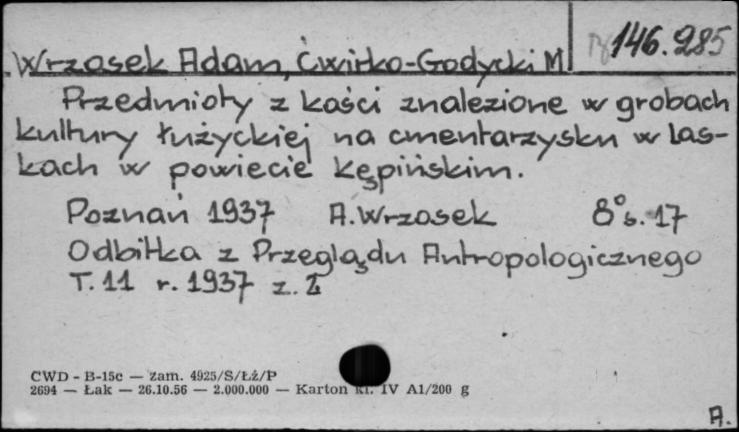 146.285
Wrzosek Adam, Ćwirko-Godycki M
Przedmioty z kości znalezione w grobach
kultury łużyckiej na cmentarzysku w Las-
kach w powiecie kępińskim.
Poznań 1937 A. Wrzosek 8° s. 17
Odbitka z Przeglądu Antropologicznego
T. 11 r. 1937 z. I
CWD - B-15c — zam. 4925/S/Łż/P
2694 — Łak — 26.10.56 — 2.000.000 — Karton kl. IV A1/200 g
A.